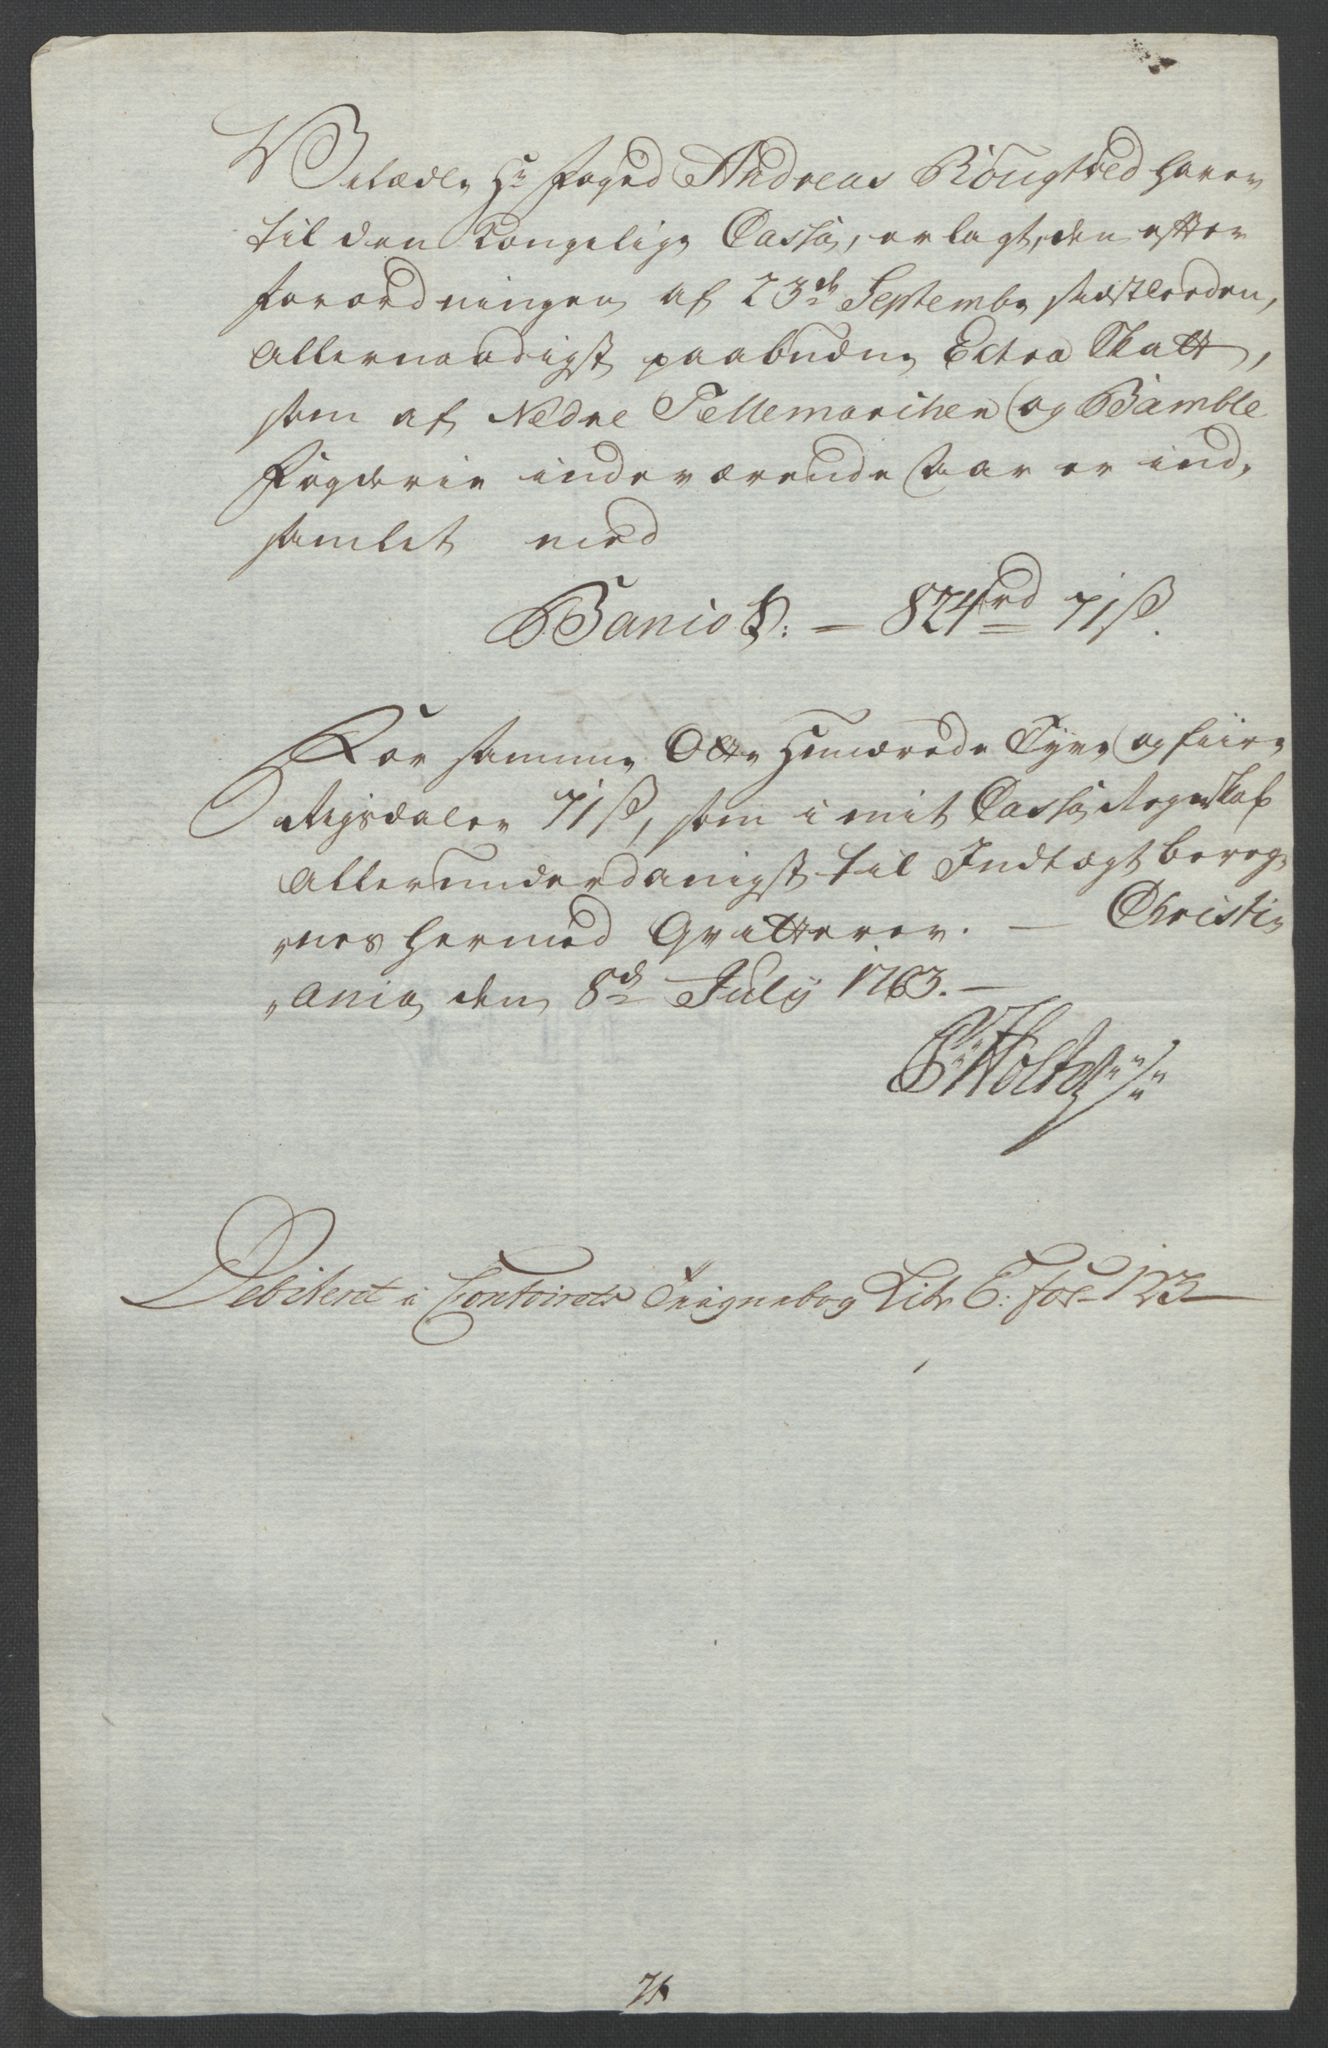 Velædle Hr Foged Andreas Rougtved haver
til den Kongelige Cassa, erlagt, den efter
forordningen af 23de Septembr sidstleeden,
Allernaadigst paabudne Extra Skatt,
som af Nedre Tellemarchen og Bamble
Fogderie indeværende Aar er ind,
samlet med
Banco S: – 824rd 71ß.
For samme Otte Hundrede Tyve og fiire
Rigsdaler 71ß, som i mit Cassa Regnskab
Allerunderdanigst til Indtægt bereg,
nes hermed Qvitterer. – Christi,
,ania den 8de July 1763. –
PHolte
Debiteret i Contoirets Tegnebog Litr E: fol 123
71